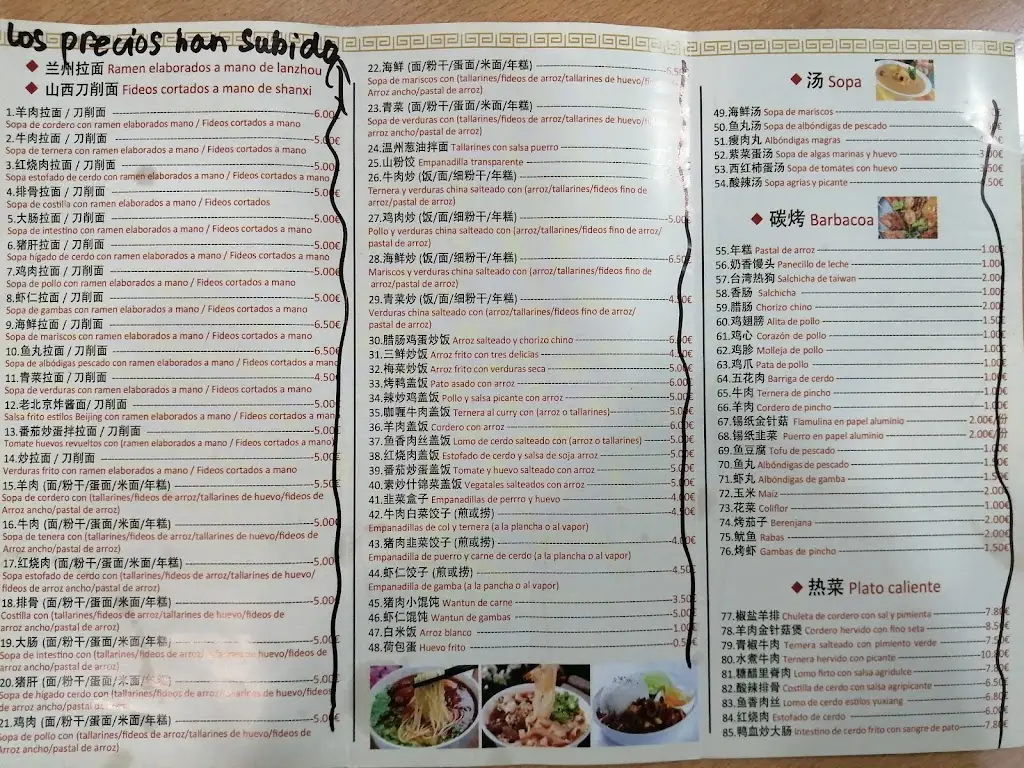 Los precios han subido
◆ 兰州拉面 Ramen elaborados a mano de lanzhou
◆ 山西刀削面 Fideos cortados a mano de shanxi
1.羊肉拉面 / 刀削面 6.00
Sopa de cordero con ramen elaborados mano / Fideos cortados a mano
2.牛肉拉面 / 刀削面 5.00€
Sopa de ternera con ramen elaborados a mano / Fideos cortados a mano
3.红烧肉拉面 / 刀削面 5.00€
Sopa estofado de cerdo con ramen elaborados a mano / Fideos cortados a mano
4.排骨拉面 / 刀削面 5.00€
Sopa de costilla con ramen elaborados a mano / Fideos cortados
5.大肠拉面 / 刀削面 5.00€
Sopa de intestino con ramen elaborados a mano / Fideos cortados a mano
6.猪肝拉面 / 刀削面 5.00€
Sopa hígado de cerdo con ramen elaborados a mano / Fideos cortados a mano
7.鸡肉拉面 / 刀削面 5.00€
Sopa de pollo con ramen elaborados a mano / Fideos cortados a mano
8.虾仁拉面 / 刀削面 5.00€
Sopa de gambas con ramen elaborados a mano / Fideos cortados a mano
9.海鲜拉面 / 刀削面 6.50€
Sopa de mariscos con ramen elaborados a mano / Fideos cortados a mano
10.鱼丸拉面 / 刀削面 6.50€
Sopa de albódigas pescado con ramen elaborados a mano / Fideos cortados a mano
11.青菜拉面 / 刀削面 4.50€
Sopa de verduras con ramen elaborados a mano / Fideos cortados a mano
12.老北京炸酱面/ 刀削面 5.00€
Salsa frito estilos Beijing con ramen elaborados a mano / Fideos cortados a mano
13.番茄炒蛋拌拉面 / 刀削面 5.00€
Tomate huevos revueltos con (ramen elaborados a mano / Fideos cortados a mano)
14.炒拉面 / 刀削面
Verduras frito con ramen elaborados a mano / Fideos cortados a mano
15.羊肉 (面/粉干/蛋面/米面/年糕) 5.50€
Sopa de cordero con (tallarines/fideos de arroz/tallarines de huevo/fideos de
Arroz ancho/pastal de arroz)
16.牛肉 (面/粉干/蛋面/米面/年糕) 5.00€
Sopa de tenera con (tallarines/fideos de arroz/tallarines de huevo/fideos de
Arroz ancho/pastal de arroz)
17.红烧肉 (面/粉干/蛋面/米面/年糕) 5.00€
Sopa estofado de cerdo con (tallarines/fideos de arroz/tallarines de huevo/
fideos de arroz ancho/pastal de arroz)
18.排骨 (面/粉干/蛋面/米面/年糕) 5.00€
Costilla con (tallarines/fideos de arroz/tallarines de huevo/fideos de
arroz ancho/pastal de arroz)
19.大肠 (面/粉干/蛋面/米面/年糕) 5.00€
Sopa de intestino con (tallarines/fideos de arroz/tallarines de huevo/fideos de
arroz ancho/pastal de arroz)
20.猪肝 (面/粉干/蛋面/米面/年糕) 5.00€
Sopa de higado cerdo con (tallarines/fideos de arroz/tallarines de huevo/fideos
de arroz ancho/pastal de arroz)
21.鸡肉 (面/粉干/蛋面/米面/年糕) 5.00€
Sopa de pollo con (tallarines/fideos de arroz/tallarines de huevo/fideos de
Arroz ancho/pastal de arroz)
22.海鲜 (面/粉干/蛋面/米面/年糕)
Sopa de mariscos con (tallarines/fideos de arroz/tallarines de huevo/fideos de
Arroz ancho/pastal de arroz)
23.青菜 (面/粉干/蛋面/米面/年糕)
Sopa de verduras con (tallarines/fideos de arroz/tallarines de huevo/fideos de
arroz ancho/pastal de arroz)
24.温州葱油拌面 Tallarines con salsa puerro
25.山粉饺 Empanadilla transparente
26.牛肉炒 (饭/面/细粉干/年糕)
Ternera y verduras china salteado con (arroz/tallarines/fideos fino de
arroz/pastal de arroz)
27.鸡肉炒 (饭/面/细粉干/年糕) 5.00€
Pollo y verduras china salteado con (arroz/tallarines/fideos fino de arroz/
pastal de arroz)
28.海鲜炒 (饭/面/细粉干/年糕) 6.50€
Mariscos y verduras china salteado con (arroz/tallarines/fideos fino de
arroz/pastal de arroz)
29.青菜炒 (饭/面/细粉干/年糕) 4.50€
Verduras china salteado con (arroz/tallarines/fideos fino de arroz/
pastal de arroz)
30.腊肠鸡蛋炒饭 Arroz salteado y chorizo chino 6.00€
31.三鲜炒饭 Arroz frito con tres delicias 4.50€
32.梅菜炒饭 Arroz frito con verduras seca 5.00€
33.烤鸭盖饭 Pato asado con arroz 6.00€
34.辣炒鸡盖饭 Pollo y salsa picante con arroz 5.00€
35.咖喱牛肉盖饭 Ternera al curry con (arroz o tallarines) 5.00€
36.羊肉盖饭 Cordero con arroz 6.00€
37.鱼香肉丝盖饭 Lomo de cerdo salteado con (arroz o tallarines) 5.00€
38.红烧肉盖饭 Estofado de cerdo y salsa de soja arroz 5.00€
39.番茄炒蛋盖饭 Tomate y huevo salteado con arroz 5.00€
40.素炒什锦菜盖饭 Vegatales salteados con arroz 5.00€
41.韭菜盒子 Empanadillas de perrro y huevo 4.00€
42.牛肉白菜饺子 (煎或捞) 4.50€
Empanadillas de col y ternera (a la plancha o al vapor)
43.猪肉韭菜饺子 (煎或捞) 4.00€
Empanadilla de puerro y carne de cerdo (a la plancha o al vapor)
44.虾仁饺子 (煎或捞) 4.50€
Empanadilla de gamba (a la pancha o al vapor)
45.猪肉小馄饨 Wantun de carne 3.50€
46.虾仁馄饨 Wantun de gambas 5.00€
47.白米饭 Arroz blanco 1.00€
48.荷包蛋 Huevo frito 0.50€
◆ 汤 Sopa
49.海鲜汤 Sopa de mariscos
50.鱼丸汤 Sopa de albóndigas de pescado
51.瘦肉丸 Albóndigas magras
52.紫菜蛋汤 Sopa de algas marinas y huevo 3.00€
53.西红柿蛋汤 Sopa de tomates con huevo 3.50€
54.酸辣汤 Sopa agrias y picante .50€
◆ 碳烤 Barbacoa
55.年糕 Pastal de arroz 1.00€
56.奶香馒头 Panecillo de leche 1.00€
57.台湾热狗 Salchicha de taiwan 2.00€
58.香肠 Salchicha 1.00€
59.腊肠 Chorizo chino 2.00€
60.鸡翅膀 Alita de pollo 1.50€
61.鸡心 Corazón de pollo 1.00€
62.鸡胗 Molleja de pollo 1.00€
63.鸡爪 Pata de pollo 1.00€
64.五花肉 Barriga de cerdo 1.00€
65.牛肉 Ternera de pincho 1.00€
66.羊肉 Cordero de pincho 1.00€
67.锡纸金针菇 Flamulina en papel aluminio 2.00€/份
68.锡纸韭菜 Puerro en papel aluminio 2.00€/份
69.鱼豆腐 Tofu de pescado 1.00€
70.鱼丸 Albóndigas de pescado 1.50€
71.虾丸 Albóndigas de gamba 1.50€
72.玉米 Maíz 2.00€
73.花菜 Coliflor 1.00€
74.烤茄子 Berenjena 2.00€
75.鱿鱼 Rabas 2.00€
76.烤虾 Gambas de pincho 1.50€
◆ 热菜 Plato caliente
77.椒盐羊排 Chuleta de cordero con sal y pimienta 7.80€
78.羊肉金针菇煲 Cordero hervido con fino seta 8.50€
79.青椒牛肉 Ternera salteado con pimiento verde 7.50€
80.水煮牛肉 Ternera hervido con picante 10.80€
81.糖醋里脊肉 Lomo frito con salsa agridulce 6.80€
82.酸辣排骨 Costilla de cerdo con salsa agripicante 6.50€
83.鱼香肉丝 Lomo de cerdo estolos yuxiang 6.80€
84.红烧肉 Estofado de cerdo 6.00€
85.鸭血炒大肠 Intestino de cerdo frito con sangre de pato 7.80€